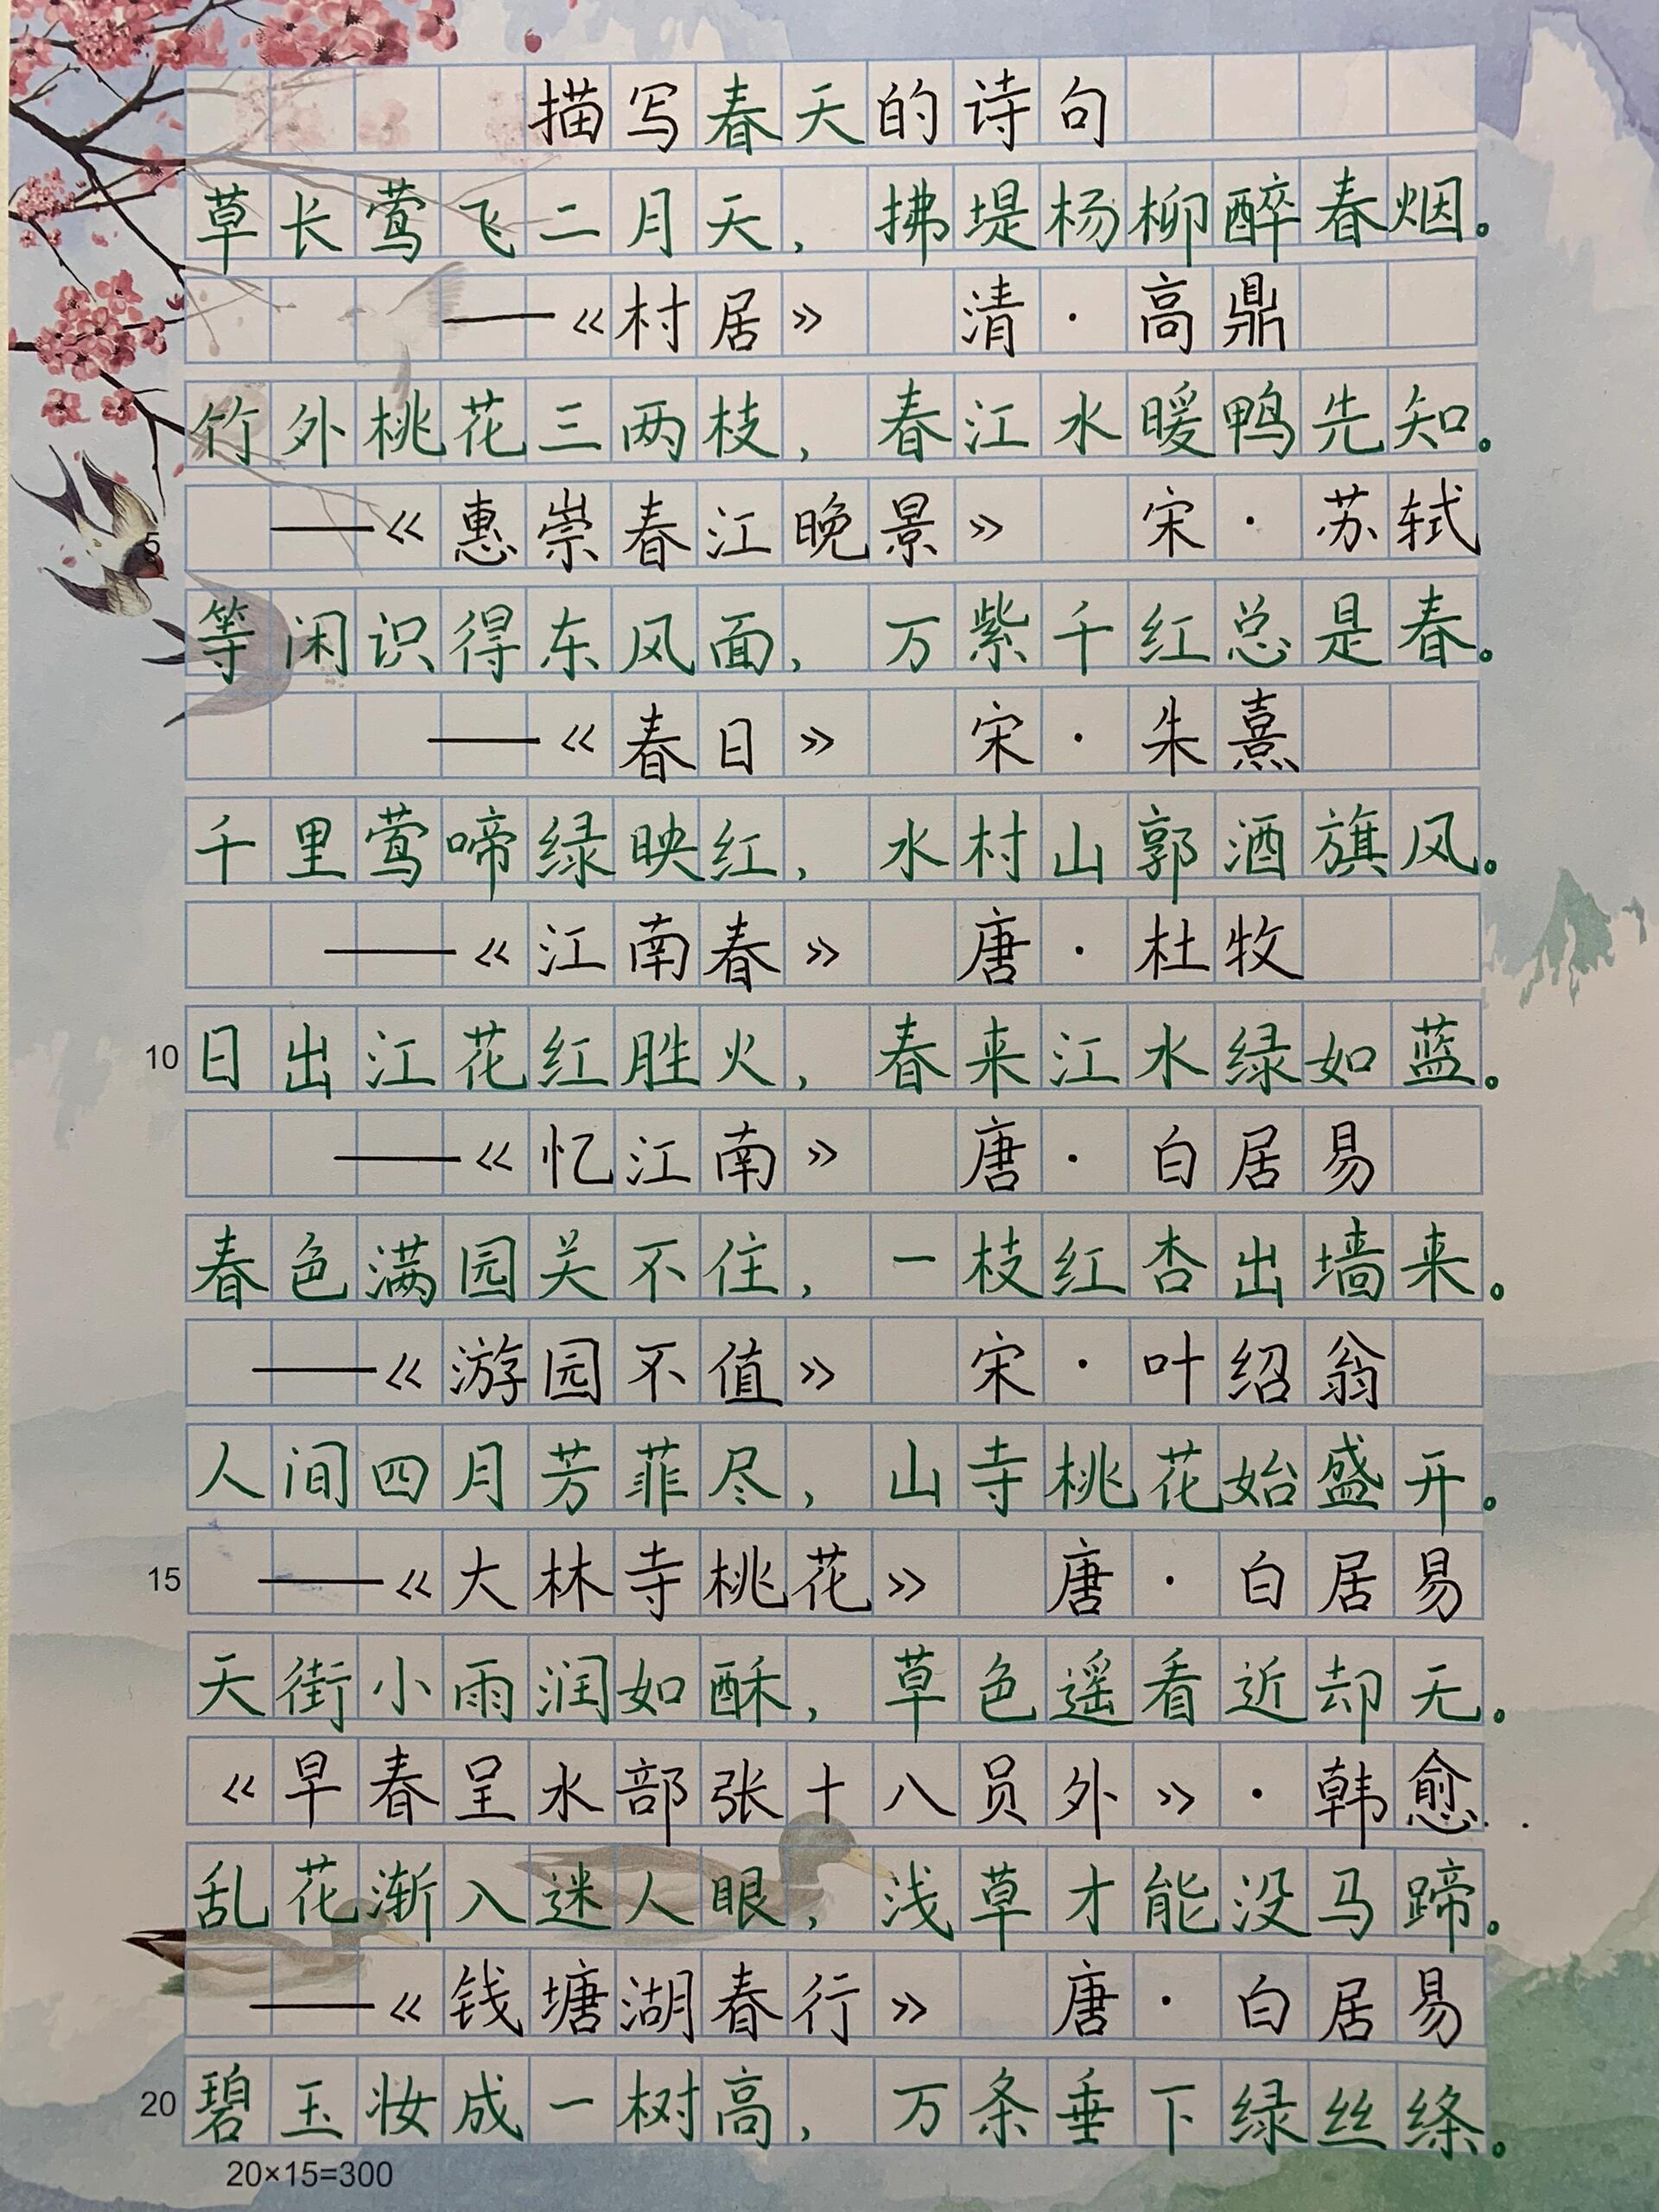 描写春天的诗句
草长莺飞二月天，拂堤杨柳醉春烟。
——《村居》 清·高鼎
竹外桃花三两枝，春江水暖鸭先知。
5 ——《惠崇春江晚景》 宋·苏轼
等闲识得东风面，万紫千红总是春。
——《春日》 宋·朱熹
千里莺啼绿映红，水村山郭酒旗风。
——《江南春》 唐·杜牧
10 日出江花红胜火，春来江水绿如蓝。
——《忆江南》 唐·白居易
春色满园关不住，一枝红杏出墙来。
——《游园不值》 宋·叶绍翁
人间四月芳菲尽，山寺桃花始盛开。
15 ——《大林寺桃花》 唐·白居易
天街小雨润如酥，草色遥看近却无。
《早春呈水部张十八员外》·韩愈
乱花渐入迷人眼，浅草才能没马蹄。
——《钱塘湖春行》 唐·白居易
20 碧玉妆成一树高，万条垂下绿丝绦。
20×15=300